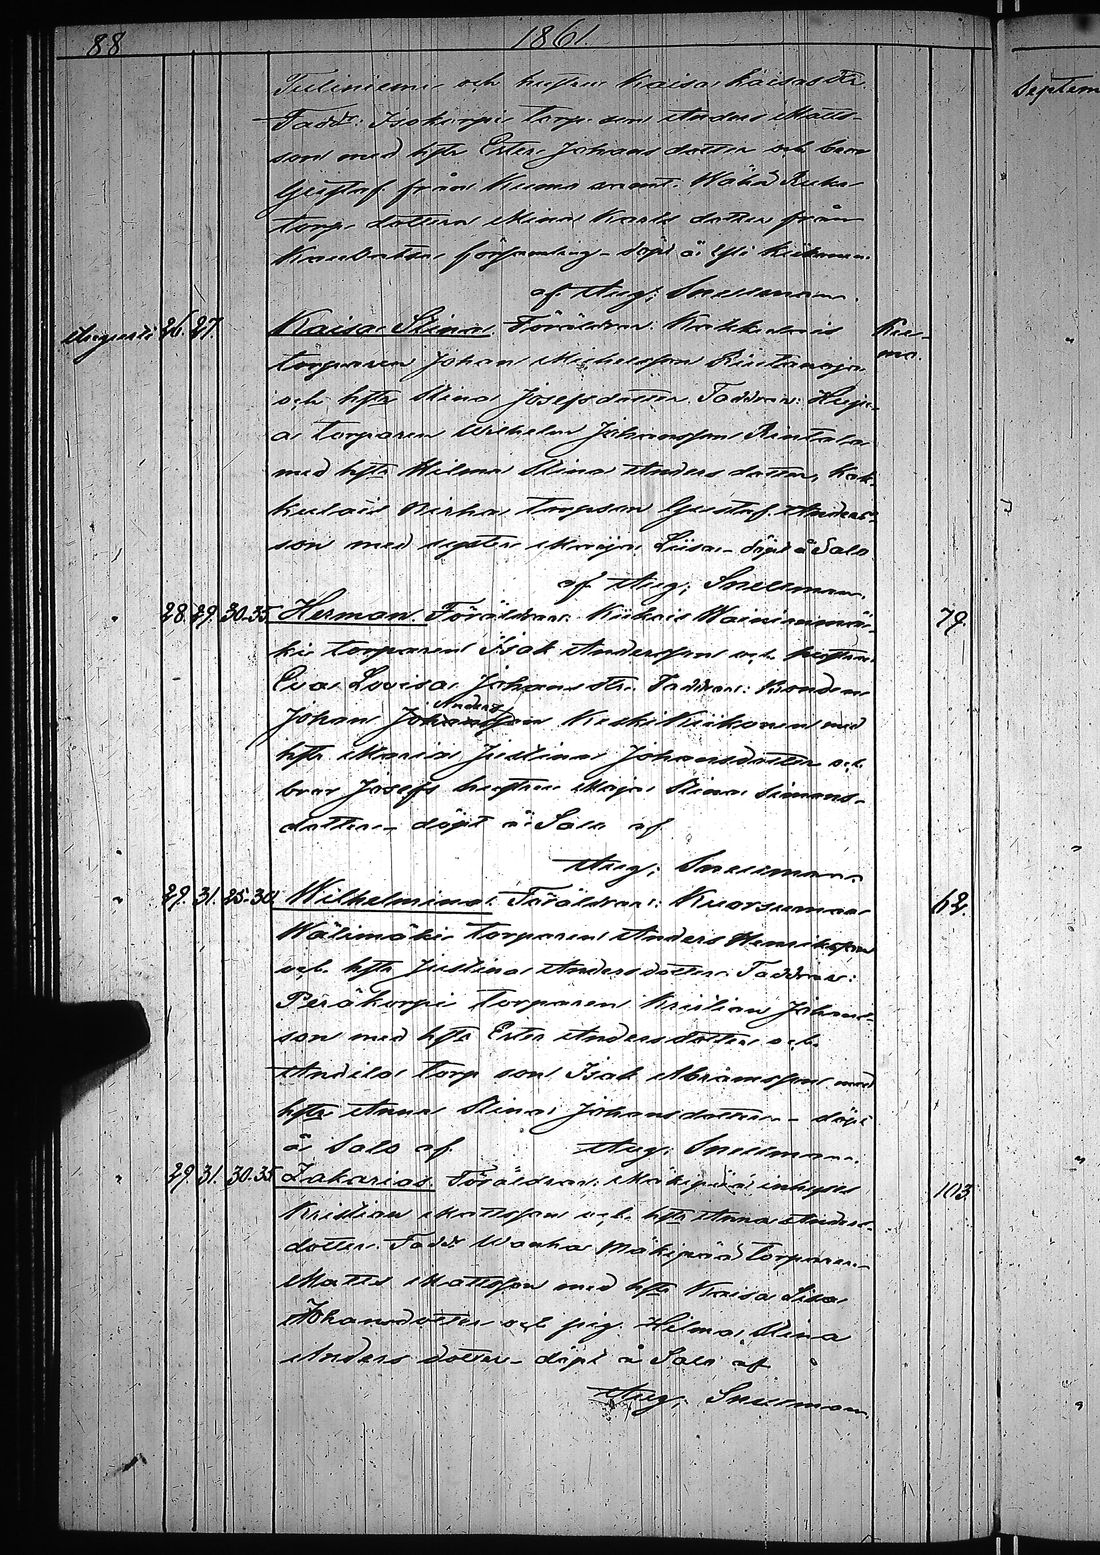 88
1861.
Tuliniemi och hustru Kaisa Kaisasdtr.
Fadd: Isokorpi torp. son Anders Matts-
son med hstr Ester Johansdotter och bror
Gustaf från Kumo samt Wähä
torp. dottern Mina Karlsdotter från
församling - döpt å
af Aug. Snellman.
Augusti 26. 27. Kaisa Stina Föräldrar: Kakkulais Ku-
torparen Johan Michelsson Riutanoja mo.
och hstr Stina Josefsdotter. Faddrar:
a torparen Wilhelm Johansson Rintala
med hstr Wilma Stina Andersdotter, Kak-
kulais torpson Gustaf Anders-
son med syster Maija Liisa - döpt å Salo
af Aug. Snellman.
" 28. 29. 30-35 Herman. Föräldrar: Wäinönmä- 79.
ki torparen Isak Andersson och hustru
Eva Lovisa Johansdtr. Faddrar: Bonden
Anders
Johan Johansson KeskiKuikonen med
hstr Maria Justina Johansdotter och
bror Josefs hustru Maja Stina Simons-
dotter - döpt å Salo af
Aug. Snellman.
" 29. 31. 25-30. Wilhelmina. Föräldrar: Kuorsumaa 62.
Wälimäki torparen Anders Henriksson
och hstr Justina Andersdotter. Faddrar:
Peräkorpi torparen Kristian Johans-
son med hstr Ester Andersdotter och
Andila torp son Isak Abramsson med
hstr Anna Stina Johansdotter - döpt
å Salo af Aug. Snellman.
" 29. 31. 30-35 Zakarias. Föräldrar: Mäkipää inhyses 103
Kristian Mattsson och hstr Anna Anders-
dotter. Fadd: Wanha Mäkipää torparen
Matts Mattsson med hstr Kaisa Lisa
Johansdotter och pig. Helma Stina
Andersdotter - döpt å Salo af
Aug. Snellman
Septem